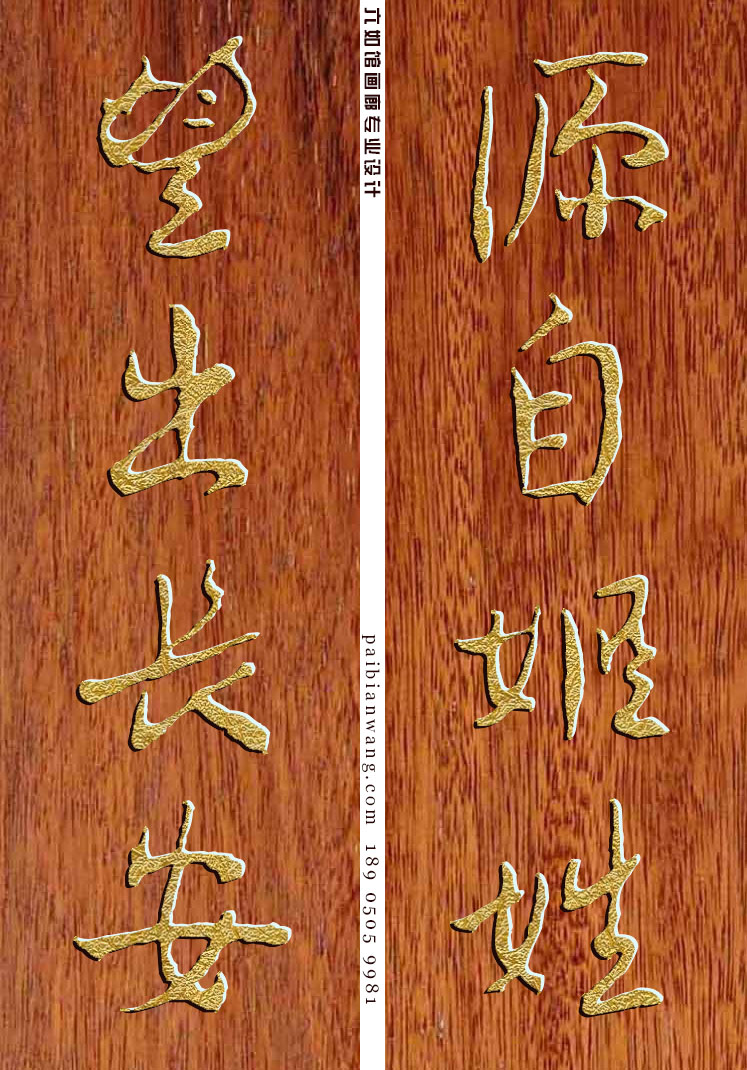 源自姬姓
望出长安
六如馆画廊专业设计
paibianwang.com 189 0505 9981